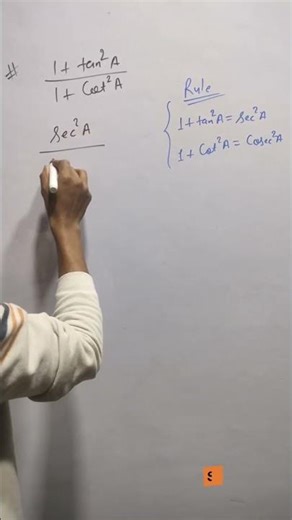 # 1 + tan²A
1 + Cot²A
Sec²A
Rule
1 + tan²A = Sec²A
1 + Cot²A = Cosec²A
S